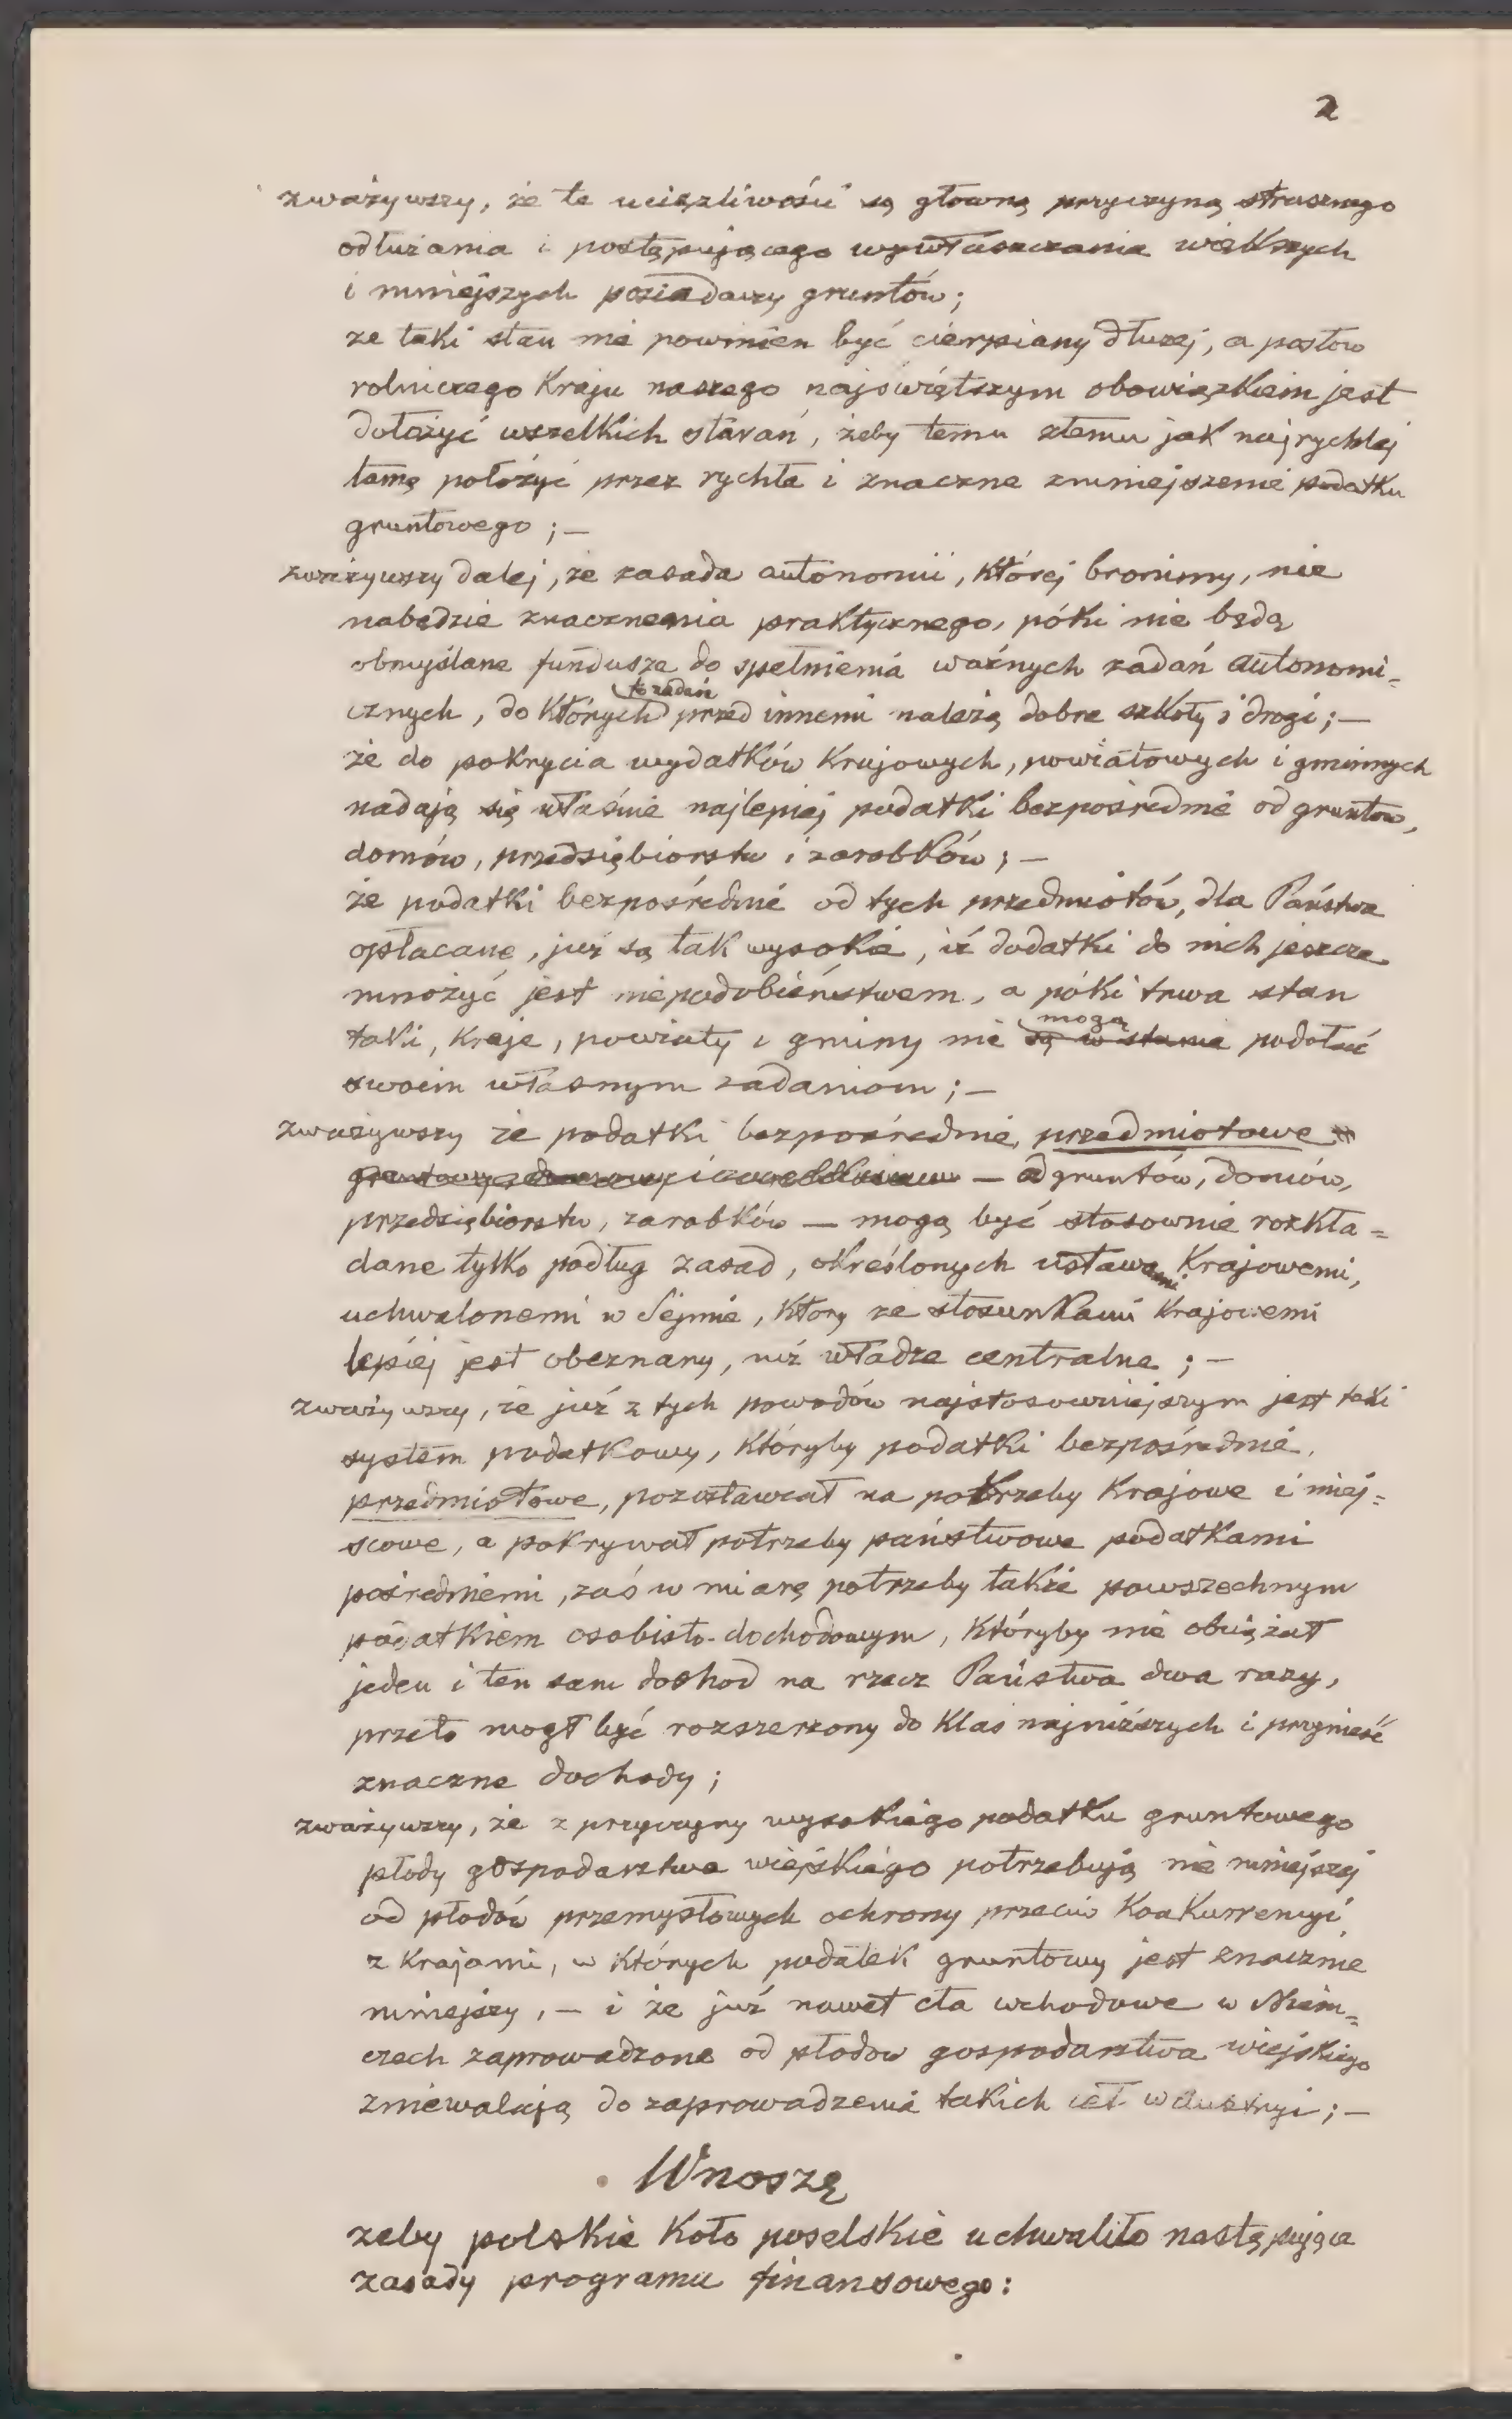 2
zważywszy, że te uciążliwości są główną przyczyną strasznego
odłużania i postępującego wywłaszczania większych
i mniejszych posiadaczy gruntów;
że taki stan nie powinien być cierpiany dłużej, a posłów
rolniczego Kraju naszego najświętszym obowiązkiem jest
dołożyć wszelkich starań, żeby temu złemu jak najrychlej
tamę położyć przez rychłe i znaczne zmniejszenie podatku
gruntowego; —
zważywszy dalej, że zasada autonomii, której bronimy, nie
nabędzie znacznenia praktycznego, póki nie będą
obmyślane fundusze do spełnienia ważnych zadań autonomi-
cznych, do których to zadań przed innemi należą dobre szkoły i drogi; —
że do pokrycia wydatków Krajowych, powiatowych i gminnych
nadają się właśnie najlepiej podatki bezpośrednie od gruntów,
domów, przedsiębiorstw i zarobków; —
że podatki bezpośrednie od tych przedmiotów, dla Państwa
opłacane, już są tak wysokie, iż dodatki do nich jeszcze
mnożyć jest niepodobieństwem, a póki trwa stan
taki, Kraje, powiaty i gminy nie są w stanie mogą podołać
swoim własnym zadaniom; —
zważywszy że podatki bezpośrednie, przedmiotowe
— od gruntów, domów,
przedsiębiorstw, zarobków — mogą być stosownie rozkła=
dane tylko podług zasad, określonych ustawami Krajowemi,
uchwalonemi w Sejmie, który ze stosunkami Krajowemi
lepiej jest obeznany, niż władze centralne; —
zważywszy, że już z tych powodów najstosowniejszym jest taki
system podatkowy, któryby podatki bezpośrednie,
przedmiotowe, pozostawiał na potrzeby Krajowe i miej=
scowe, a pokrywał potrzeby państwowe podatkami
pośredniemi, zaś w miarę potrzeby także powszechnym
podatkiem osobisto-dochodowym, któryby nie obciążał
jeden i ten sam dochod na rzecz Państwa dwa razy,
przeto mogł być rozszerzony do Klas najniższych i przynieść
znaczne dochody;
zważywszy, że z przyczyny wysokiego podatku gruntowego
płody gospodarstwa wiejskiego potrzebują nie mniejszej
od płodów przemysłowych ochrony przeciw Konkurrencyi
z Krajami, w których podatek gruntowy jest znacznie
mniejszy, — i że już nawet cła wchodowe w Niem=
czech zaprowadzone od płodow gospodarstwa wiejskiego
zniewalają do zaprowadzenia takich ceł w Austryi; —
Wnoszę
żeby polskie Koło poselskie uchwaliło następujące
zasady programu finansowego: